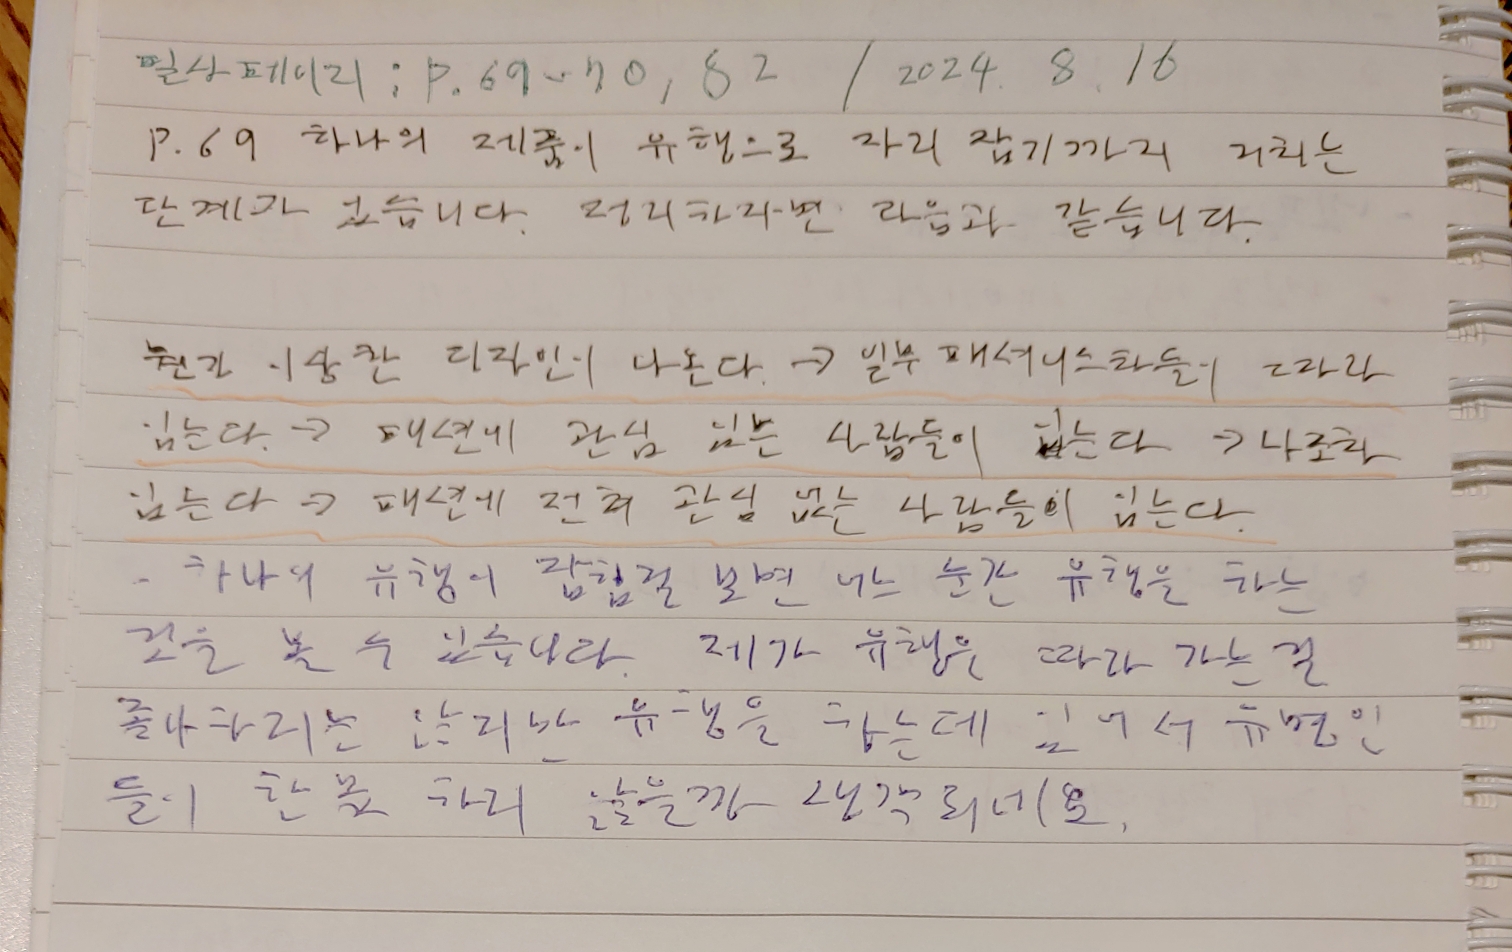 필사페이지 : P.69~70, 82 / 2024. 8. 16
P.69 하나의 제품이 유행으로 자리 잡기까지 거치는
단계가 있습니다. 정리하자면 다음과 같습니다.
뭔가 이상한 디자인이 나온다. → 일부 패셔니스타들이 따라
입는다. → 패션에 관심 있는 사람들이 입는다 → 나조차
입는다 → 패션에 전혀 관심 없는 사람들이 입는다.
- 하나의 유행이 잡힌걸 보면 어느 순간 유행을 하는
것을 볼 수 있습니다. 제가 유행은 따라 가는 걸
좋아하지는 않지만 유행을 하는데 있어서 유명인
들이 한몫 하지 않을까 생각되네요.